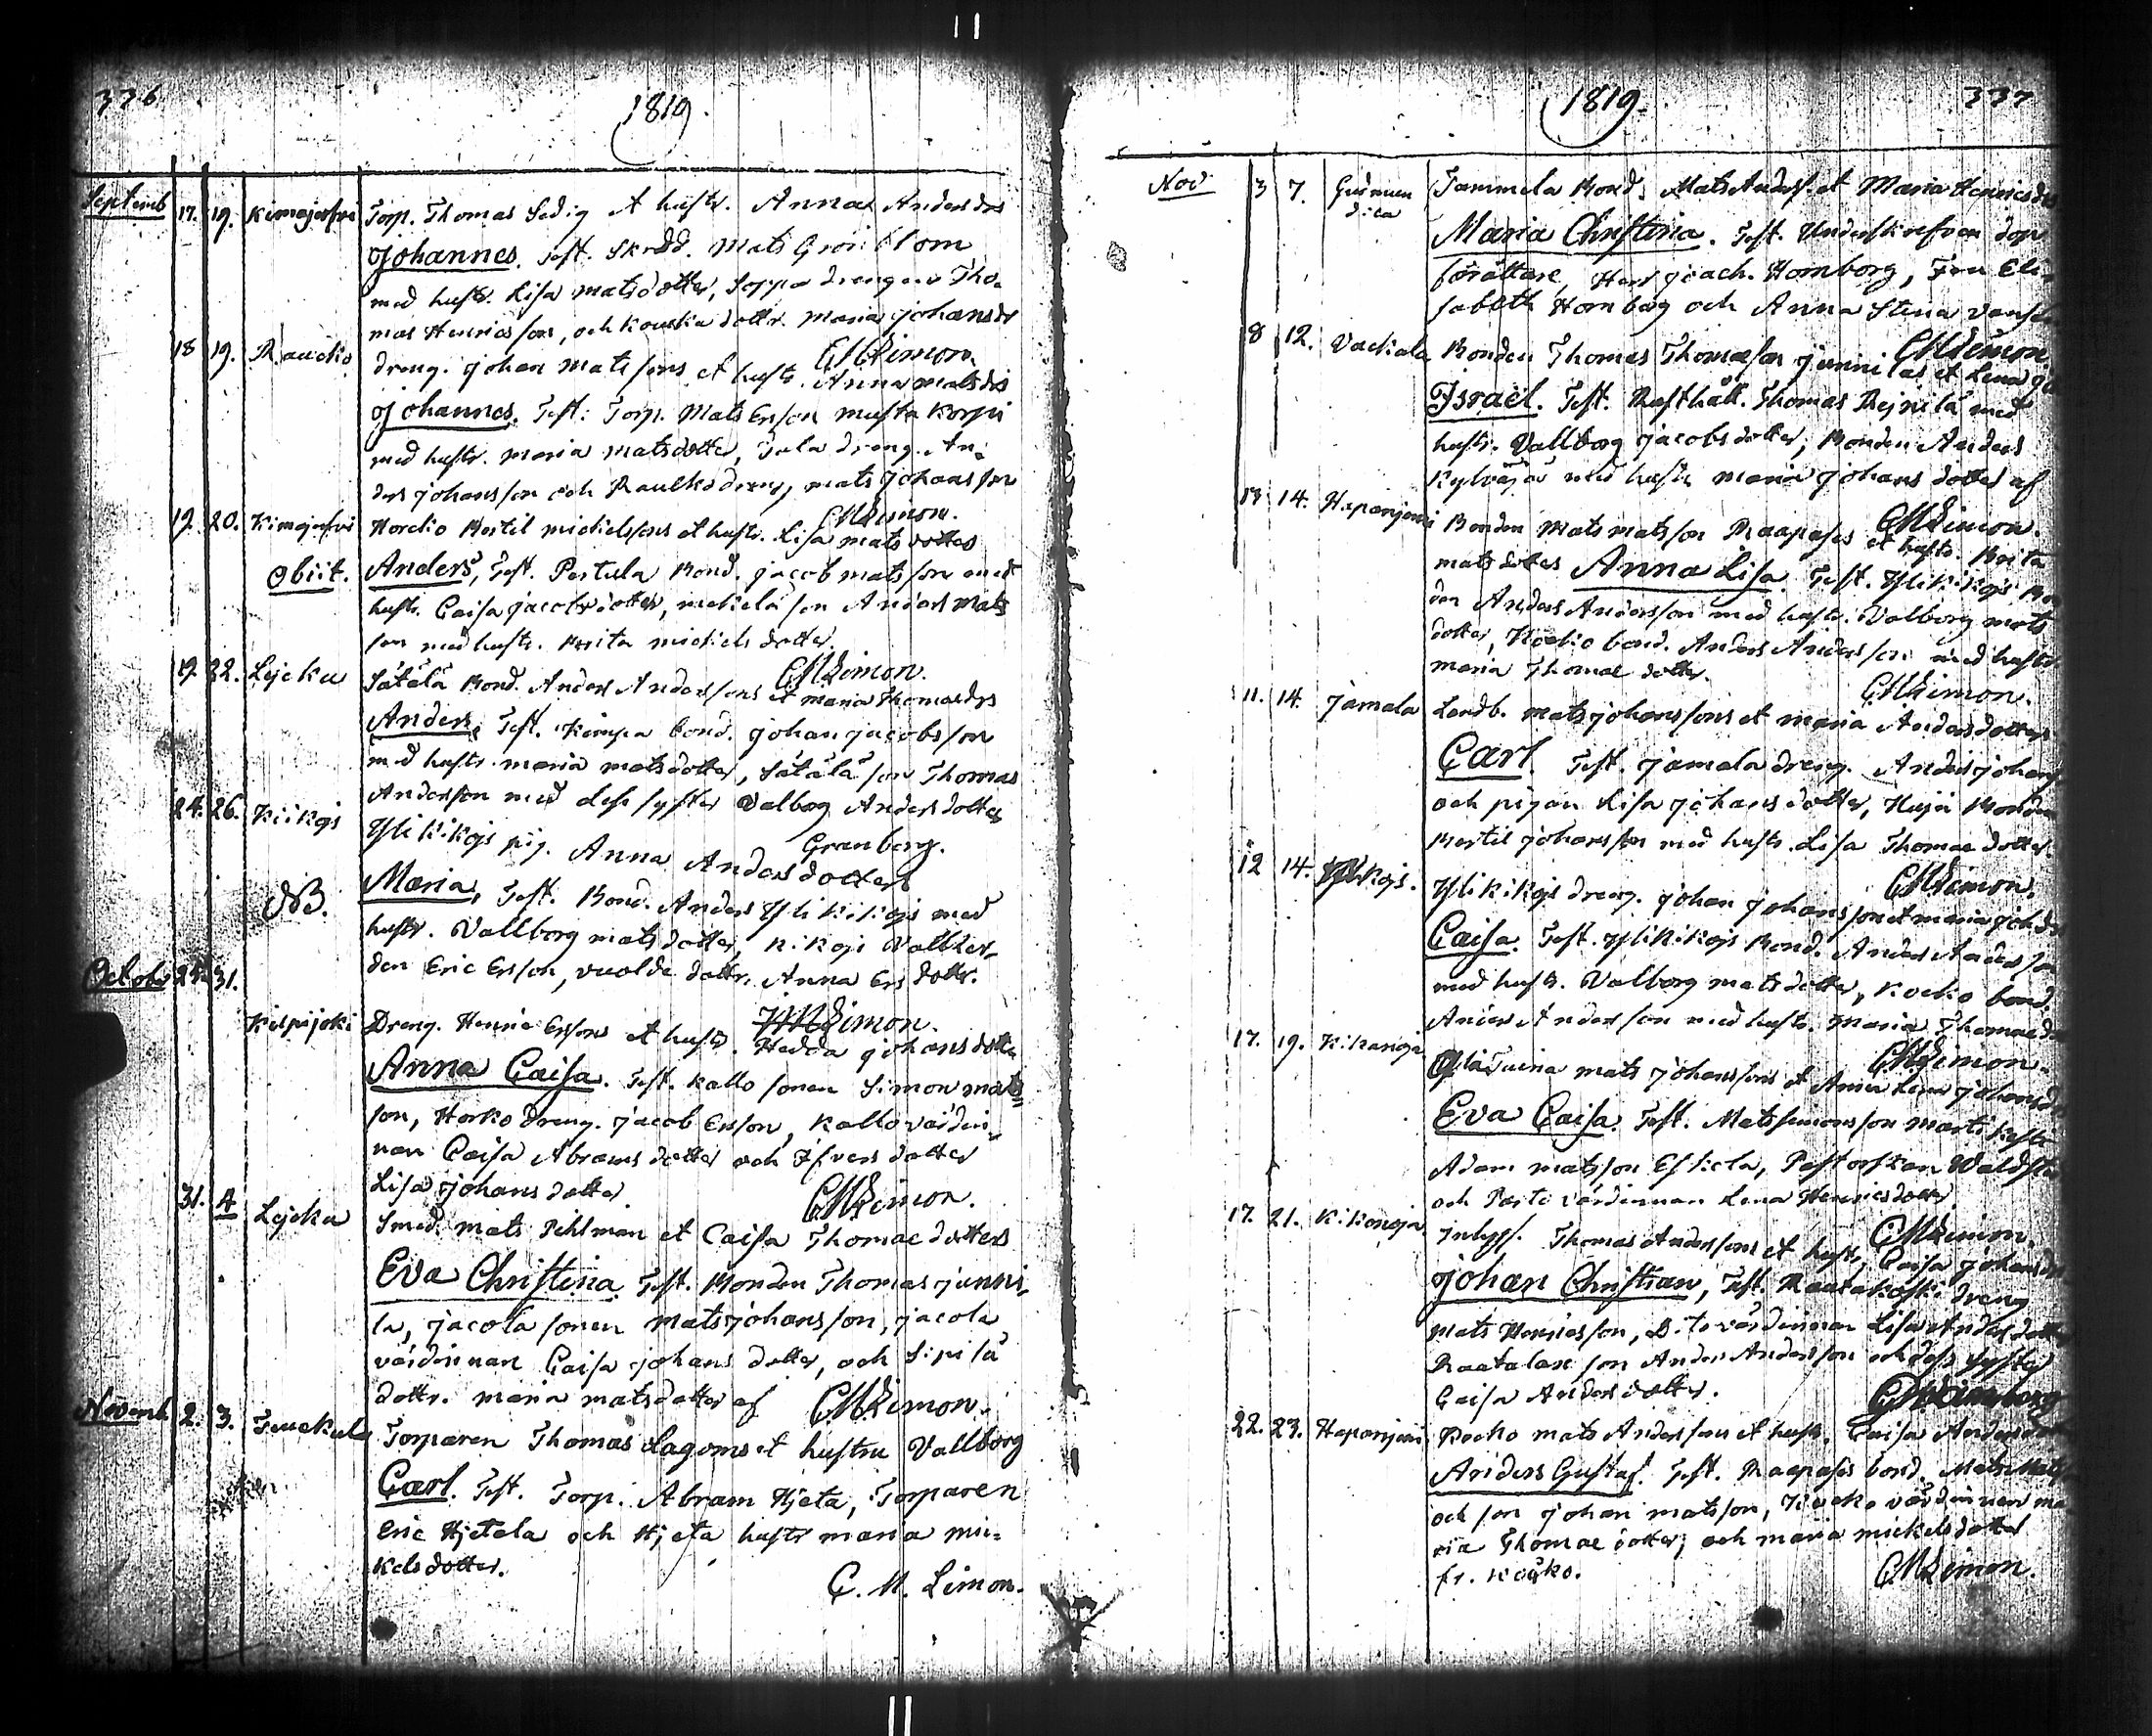 336
1819.
Septemb 17. 19. Kimajerfvi Torp. Thomas Sedig et hustr. Anna Andersdrs
Johannes. Test. Skrädd. Mats Grönblom
med hustr. Lisa matsdotter, Soppa drengen Tho-
mas Henricsson, och Kouska dottr. maria johansdr
CM Limon.
18 19. Raucko dreng. johan matssons et hustr. Anna matsdrs
Johannes. Test: Torp. Mats Ersson musta Korpi
med hustr. maria matsdotter, Tula dreng. An-
ders johansson och Raucko dreng, mats johansson
CM Limon.
19. 20. Kimajerfvi Horcko Bertil mickelssons et hustr. Lisa mats dotters
Obiit. Anders, Test. Pertula Bond. jacob matsson med
hustr. Caisa jacobs dotter, mickelä son Anders Mats
son med hustr. Brita mickels dotter.
CM Limon.
19. 22. Lejcku Sätälä Bond. Anders Anderssons et maria Thomædrs
Anders, Test. Kimpa bond. johan jacobsson
med hustr. maria matsdotter, Sätälä son Thomas
Andersson med dess syster Valborg Anders dotter
Granberg.
24. 26. Kiikojs Ylikikojs pig. Anna Anders dotters
NB. Maria, Test. Bond. Anders Ylikikojs med
hustr. Vallborg mats dotter, Kikojs
den Eric Ersson, vuolde dottr. Anna Ers dottr.
Limon.
Octobr 31.
Kilpijoki Dreng. Henric Erssons et hustr. Hedda johans dotter
Anna Caisa. Test. Kallo sonen Simon mats-
son, Horko Dreng. jacob Ersson, Kallo värdin-
nan Caisa Abrams dotter och dotter
Lisa johans dotter
CM Limon.
31. 4 Lejcku Smed. mats Pihlman et Caisa Thomæ dotters
Eva Christina. Test. Bonden Thomas junni-
la, jacola sonen mats johansson, jacola
värdinnan Caisa johans dotter, och Sipilä
dottr. maria matsdotter af CM Limon.
Novemb 2. 3. Torparen Thomas Lagoms et hustru Vallborg
Carl. Test. Torp. Abram Hjeta, Torparen
Eric Hjetala och Hjeta hustr maria mic-
kelsdotter.
C. M. Limon.
1819.
337
Nov 3 7. Tammela Bond. Mats Anderss. et Maria Henricsdr
Maria Christina. Test. Underskrefven dop
förättare, Herr joach. Homborg, Fru Eli-
sabeth Homborg och Anna Stina
CM Limon
8 12. Vackala Bonden Thomas Thomasson junnilas et Lena
Israël. Test. Rusthåll. Thomas Rejnilä med
hustr. Vallborg jacobs dotter, Bonden Anders
Kylväjä med hustr. maria johans dotter af
CM Limon.
13 14. Haponjemi Bonden Mats matsson Raapases et hustr. Brita
mats dotters Anna Lisa. Test. Ylikikojs Bon
den Anders Andersson med hustr. Valborg mats
dotter, Kocko bond. Anders Andersson med hustr
maria Thomæ dotter.
CM Limon.
11. 14. Jamala Landb. mats johanssons et maria Anders dotters
Carl. Test. jamala dreng. Anders johans
och pigan Lisa johans dotter, Huja Bonden
Bertil johansson med hustr. Lisa Thomæ dotter.
CM Limon.
12 14. Ylikikojs dreng. johan johansson et maria joh dr
Caisa. Test. Ylikikojs Bond. Anders Andersson
med hustr. Valborg mats dotter, Kocko bond.
Anders Andersson med hustr. Maria Thomæ d
CM Limon.
17. 19. Kikanoja mats johanssons et Anna Lena johansdr
Eva Caisa. Test. Mats simonsson
Adam matsson Eskola,
och Parti värdinnan Lena Henricsdotter
CM Limon.
17. 21. Kikanoja Inhyss. Thomas Anderssons et hustr. Caisa johansdr
Johan Christian, Test. Raatakoski dreng
Mats Henricsson, Dito värdinnan Lisa Anders dotter
Raatalan son Anders Andersson och dess syster
Caisa Anders dotter.
22. 23. Haponjemi Kocko mats Anderssons et hustr. Caisa Anders
Anders Gustaf. Test. Raapases bond. Mats Mats
och son johan matsson, Kocko värdinnan ma
ria Thomæ dotter, och maria mickels dotter
fr. Kocko.
CM Limon.